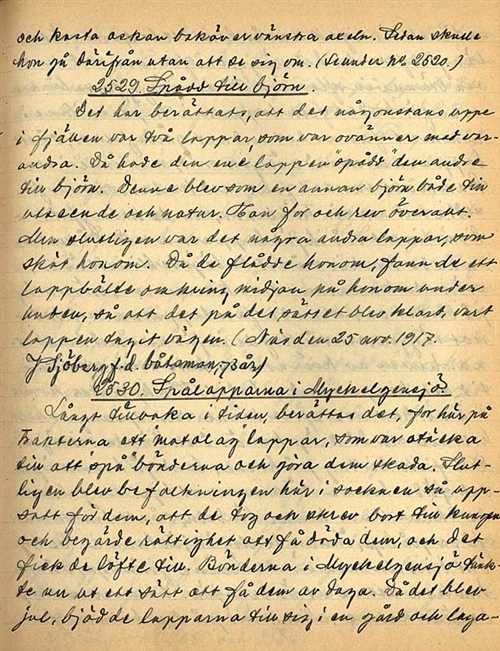 och kasta askan baköver vänstra axeln. Sedan skulle
hon gå därifrån utan att se sig om. (Se under No 2520.)
2529. Spådd till björn.
Det har berättats, att det någonstans uppe
i fjällen var två lappar, som var ovänner med var-
andra. Då hade den ene lappen "spådd" den andre
till björn. Denne blev som en annan björn både till
utseende och natur. Han for och rev överallt.
Men slutligen var det några andra lappar, som
sköt honom. Då de flådde honom, fann de ett
lappbälte omkring midjan på honom under
huden, så att det på det sättet blev klart, vart
lappen tagit vägen. (Näsden 25 nov. 1917.
J Sjöberg f.d. båtsman, 73 år)
2530. Spålapparna i Myckelgensjö.
Långt tillbaka i tiden, berättas det, for här på
trakterna ett "matalag" lappar, som var otäcka
till att "spå" bönderna och göra dem skada. Slut-
ligen blev befolkningen här i socknen så upp-
satt för dem, att de tog och skrev bort till kungen
och begärde rättighet att få döda dem, och det
fick de löfte till. Bönderna i Myckelgensjö tänk-
te nu ut ett sätt att få dem av daga. Då det blev
jul, bjödde lapparna till sig i en gård och laga-